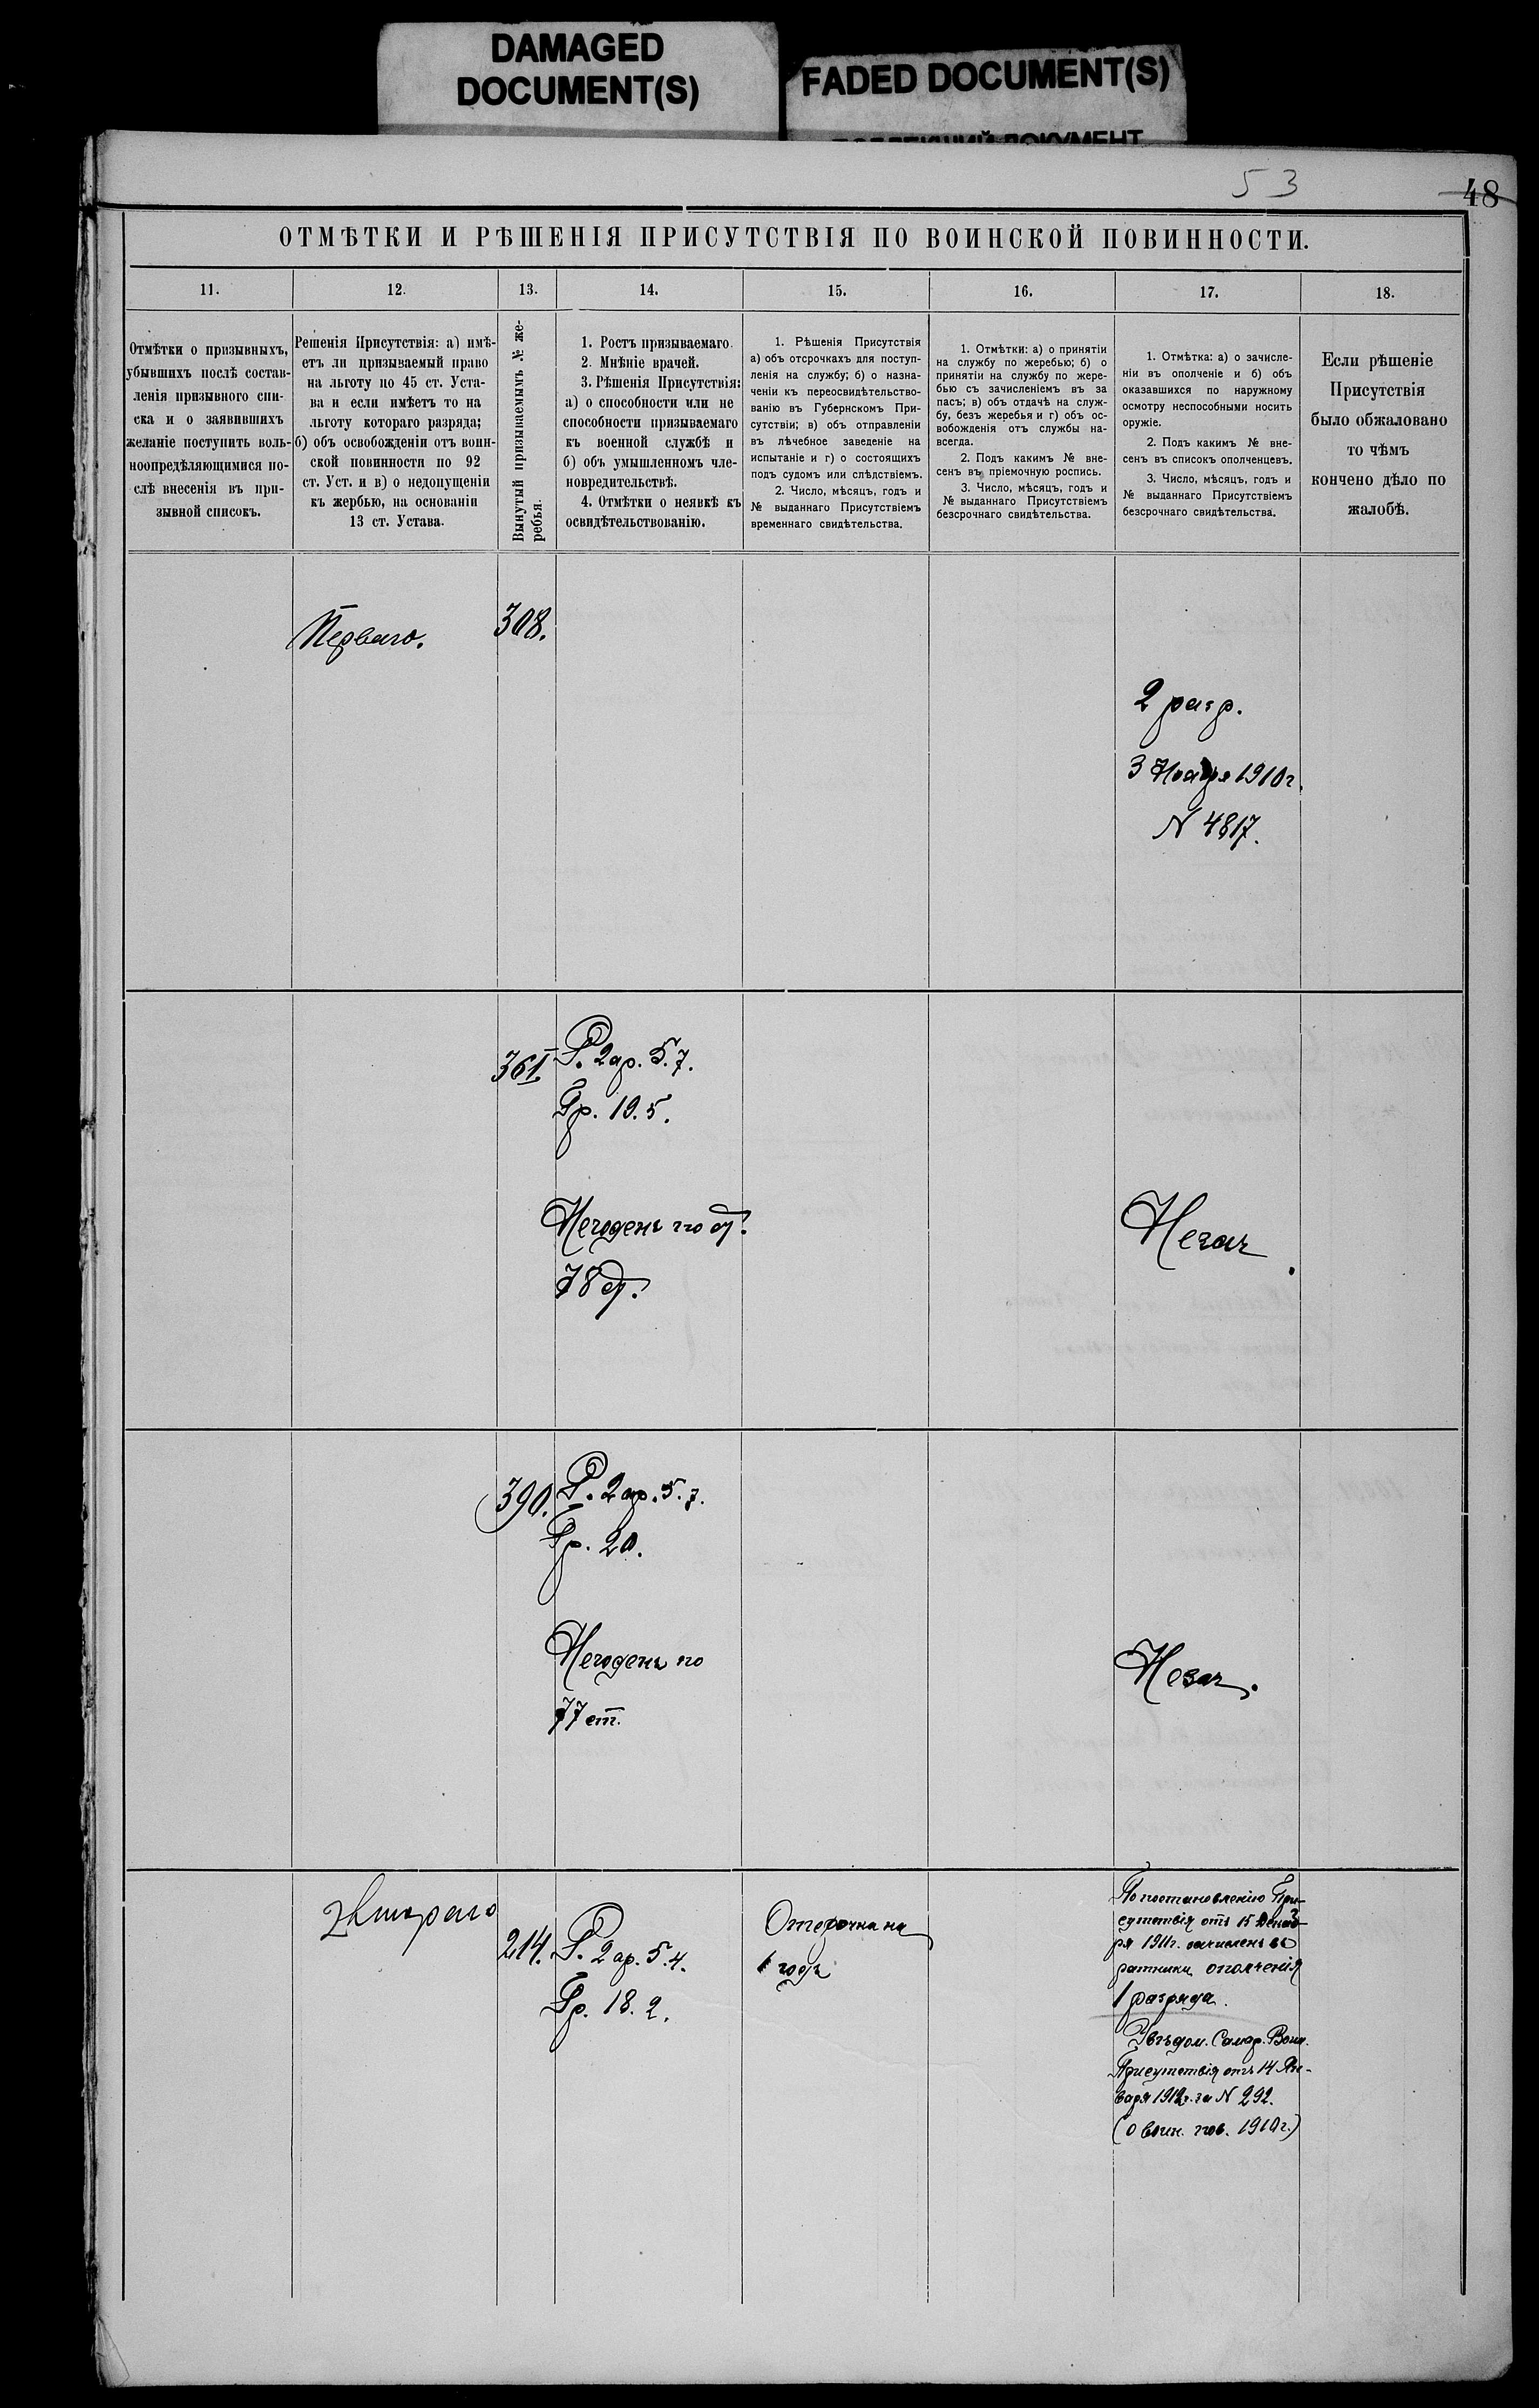 DAMAGED
DOCUMENT(S)
FADED DOCUMENT(S)
53
48
ОТМѢТКИ И РѢШЕНІЯ ПРИСУТСТВІЯ ПО ВОИНСКОЙ ПОВИННОСТИ.
11.
12.
13.
14.
15.
16.
17.
18.
Отмѣтки о призывныхъ,
убывшихъ послѣ состав-
ленія призывного спи-
ска и о заявившихъ
желаніе поступить воль-
ноопредѣляющимися по-
слѣ внесенія въ при-
зывной списокъ.
Решенія Присутствія: а) имѣ-
етъ ли призываемый право
на льготу по 45 ст. Уста-
ва и если имѣетъ то на
льготу котораго разряда;
б) объ освобожденіи отъ воин-
ской повинности по 92
ст. Уст. и в) о недопущеніи
къ жербью, на основаніи
13 ст. Устава.
Вынутый призываемымъ № же-
ребья.
1. Ростъ призываемаго.
2. Мнѣніе врачей.
3. Рѣшенія Присутствія:
а) о способности или не
способности призываемаго
къ военной службѣ и
б) объ умышленномъ чле-
новредительствѣ.
4. Отмѣтки о неявкѣ къ
освидѣтельствованію.
1. Рѣшенія Присутствія
а) объ отсрочкахъ для поступ-
ленія на службу; б) о назна-
ченіи къ переосвидѣтельство-
ванію въ Губернскомъ При-
сутствіи; в) объ отправленіи
въ лѣчебное заведеніе на
испытаніе и г) о состоящихъ
подъ судомъ или слѣдствіемъ.
2. Число, мѣсяцъ, годъ и
№ выданнаго Присутствіемъ
временнаго свидѣтельства.
1. Отмѣтки: а) о принятіи
на службу по жеребью; б) о
принятіи на службу по жере-
бью съ зачисленіемъ въ за
пасъ; в) объ отдачѣ на служ-
бу, безъ жеребья и г) объ ос-
вобожденія отъ службы на-
всегда.
2. Подъ какимъ № вне-
сенъ въ пріемочную роспись.
3. Число, мѣсяцъ, годъ и
№ выданнаго Присутствіемъ
безсрочнаго свидѣтельства.
1. Отмѣтка: а) о зачисле-
ніи въ ополченіе и б) объ
оказавшихся по наружному
осмотру неспособными носить
оружіе.
2. Подъ какимъ № вне-
сенъ въ списокъ ополченцевъ.
3. Число, мѣсяцъ, годъ и
№ выданнаго Присутствіемъ
безсрочнаго свидѣтельства.
Если рѣшеніе
Присутствія
было обжаловано
то чѣмъ
кончено дѣло по
жалобѣ.
Перваго.
308.
2 разр.
3 Ноября 1910г.
N 4817.
361.
Р. 2 ар. 5.7.
Гр. 19.5.
Негоденъ по
78
Незач.
390.
Р. 2 ар. 5.7.
Гр. 20.
Негоденъ по
77 ст.
Незач.
Втораго
214.
Р. 2 ар. 5.4.
Гр. 18.2.
Отсрочка на
1 годъ
По постановленію При-
сутствія отъ 15 Декаб-
ря 1911г. зачисленъ въ
ратники ополченія
1 разряда.
Увѣдом. Самар. Воин.
Присутствія отъ 14 Ян-
варя 1912г. за N 292.
(О воин. пов. 1910г.)